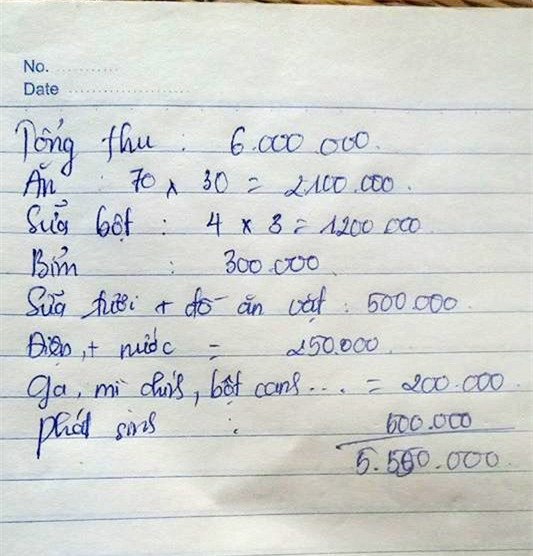 No. ............
Date ............
Tổng thu : 6.000.000.
Ăn : 70 x 30 = 2100.000.
Sữa bột : 4 x 3 = 1200 000
Bỉm : 300.000
Sữa tươi + đồ ăn vặt : 500.000
Điện + nước = 250.000
Ga, mì chính, bột canh ... = 200.000
phát sinh : 600.000
5.550.000.